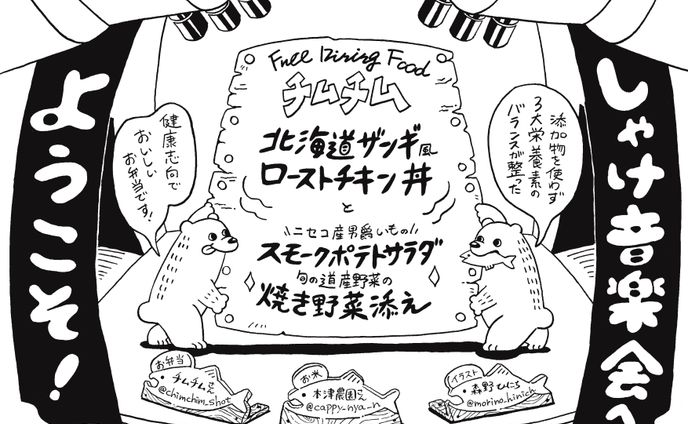 しゃけ音楽会へ
ようこそ!
Full Dining Food
チムチム
北海道ザンギ風
ローストチキン丼
と
ニセコ産男爵いもの
スモークポテトサラダ
旬の道産野菜の
焼き野菜添え
添加物を使わず
3大栄養素の
バランスが整った
健康志向で
おいしい
お弁当です!
お弁当
チムチムさん
@chimchim_shot
お米
本津農園さん
@cappy_nya_n
イラスト
森野ひにち
@morino_hinichi